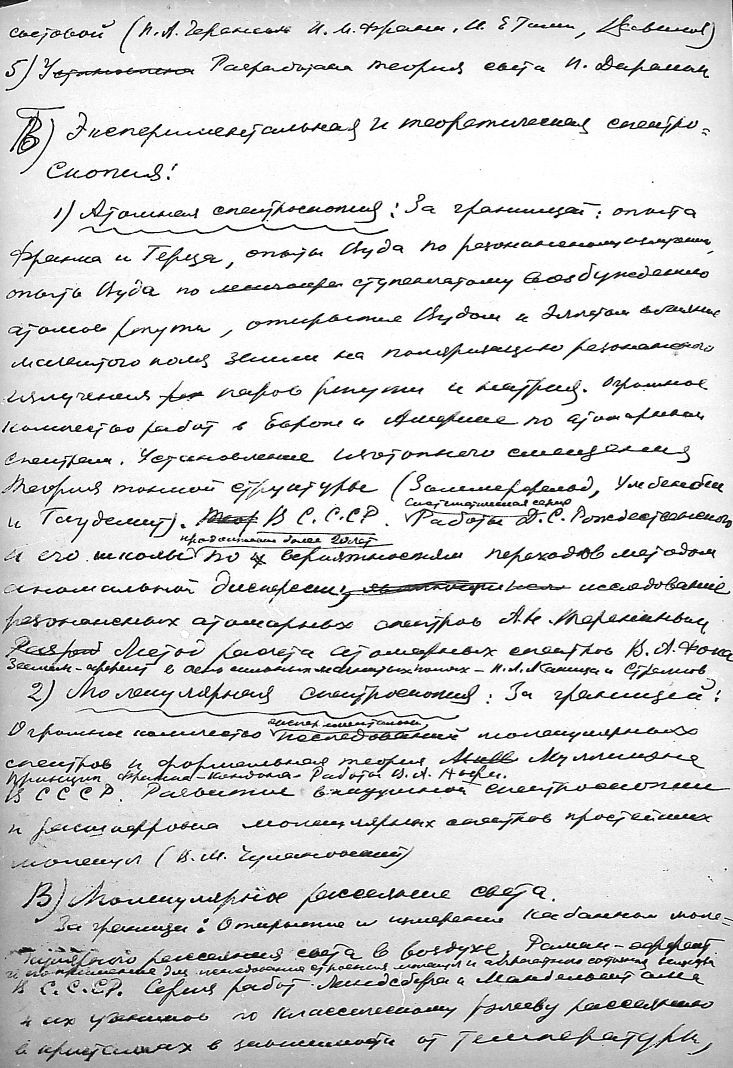 (П. А. Черенков И. М. Франк, И. Е Тамм,
5) Установлена Разработана теория света П. Дираком
Б) Экспериментальная и теоретическая спектро=
скопия:
1) Атомная спектроскопия: За границей: опыты
Франка и Герца, опыты Вуда по резонансному излучению,
опыты Вуда по ступенчатому возбуждению
атомов ртути, открытие Вудом и Эллетом влияние
магнитного поля земли на поляризацию резонансного
излучения паров ртути и натрия. Огромное
количество работ в Европе и Америке по атомарным
спектрам. Установление изотопного смещения
Теория тонкой структуры (Зоммерфельд, Уленбек
и Гаудсмит). В С.С.С.Р. Систематическая серия
Работы Д.С. Рождественского
продолжением более 20 лет
и его школы по вероятностям переходов методом
аномальной дисперсии, исследование
резонансных атомарных спектров А.Н. Терениным
Метод расчета атомарных спектров В. А. Фока
Зееман-эффект в сильных магнитных полях - П. Л. Капица и Стрелков
2) Молекулярная спектроскопия: За границей:
экспериментальных
Огромное количество исследований молекулярных
спектров и формальная теория Мулликена
Принцип Франка-Кондона. Работы
В СССР. Развитие вакуумной спектроскопии
и расшифровка молекулярных спектров простейших
молекул (В. М. Чулановский)
В) Молекулярное рассеяние света.
За границей: Открытие и измерение Кабанном моле=
кулярного рассеяния света в воздухе. Раман-эффект
и его применение для исследования строения молекул и агрегатного состояния вещества
В С.С.СР. Серия работ Ландсберга и Мандельштама
и их учеников по классическому рэлееву рассеянию
в кристаллах в зависимости от температуры,